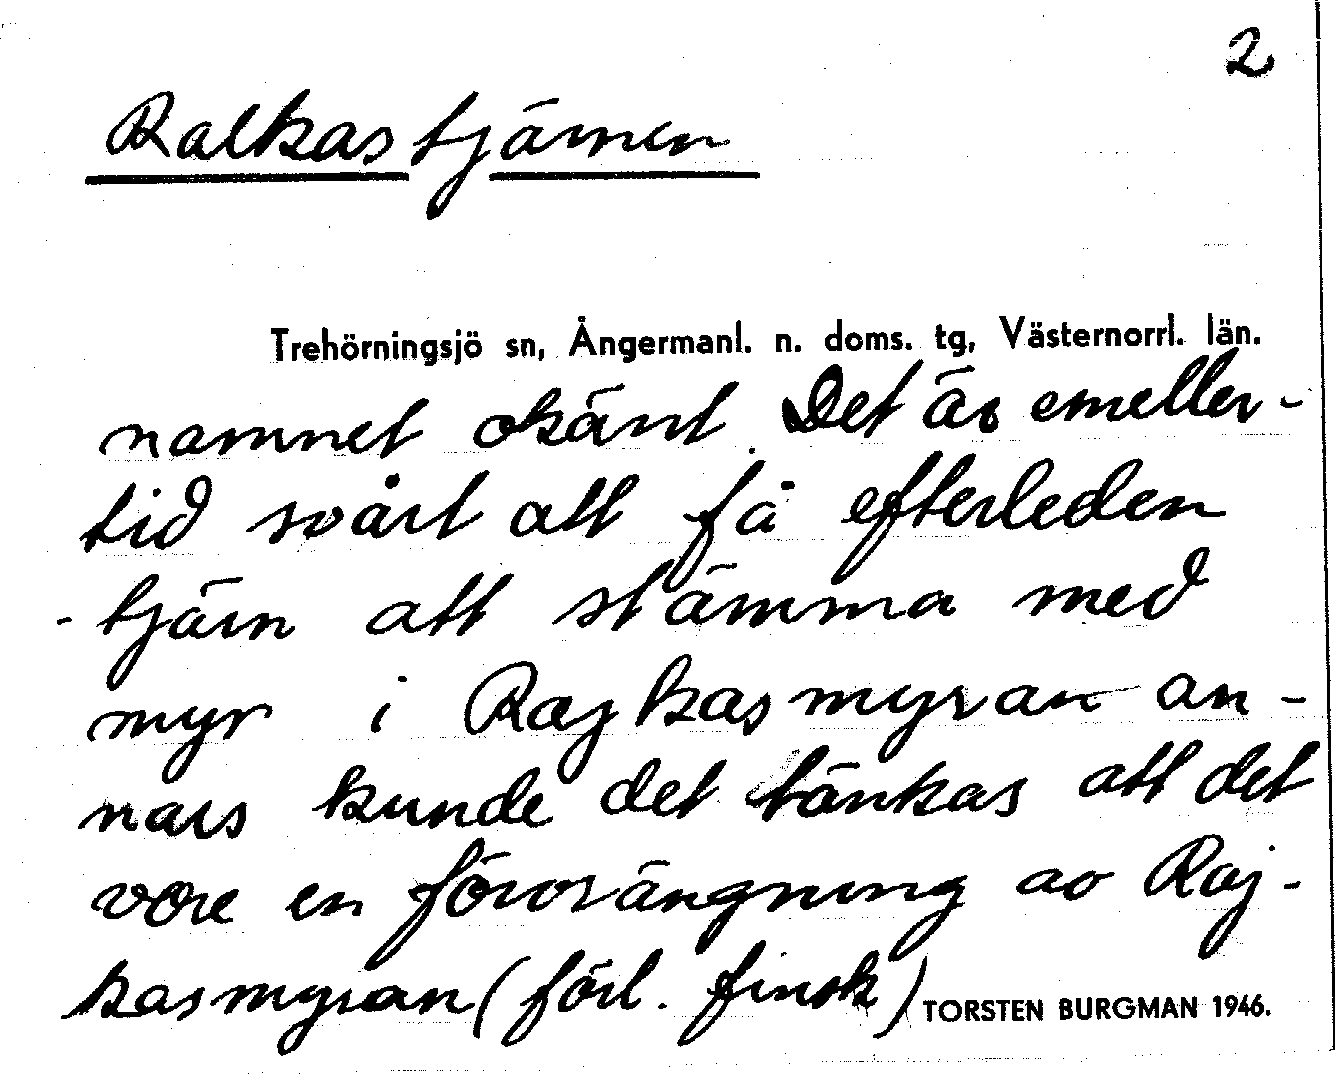 2
Ralkastjärnen
Trehörningsjö sn, Ångermanl. n. doms. tg, Västernorrl. län.
namnet okänt. Det är emeller-
tid svårt att få efterleden
-tjärn att stämma med
myr i Rajkasmyran an-
nars kunde det tänkas att det
vore en förvrängning av Raj-
kasmyran (förl. finsk)
TORSTEN BURGMAN 1946.